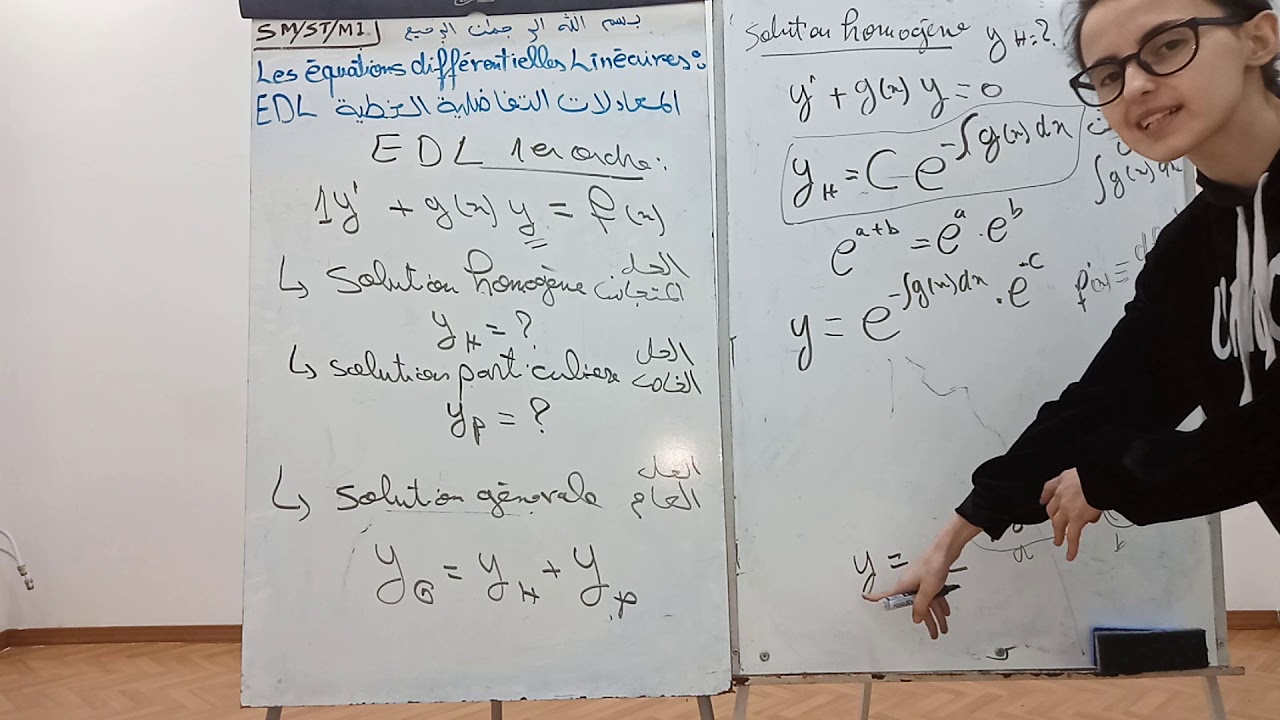 SM/ST/MI بسم الله الرحمن الرحيم
Les équations différentielles Linéaires:
EDL المعادلات التفاضلية الخطية
EDL 1er ordre:
1y' + g(x) y = f(x)
↳ Solution homogène الحل المتجانس
y_H = ?
↳ solution particulière الحل الخاص
y_P = ?
↳ solution générale الحل العام
y_G = y_H + y_P
Solution homogène y_H = ?
y' + g(x) y = 0
y_H = C e^{-∫g(x)dx}
∫g(x)dx
e^{a+b} = e^a · e^b
y = e^{-∫g(x)dx} · e^{-C}
f'(x) =
y =
a
b